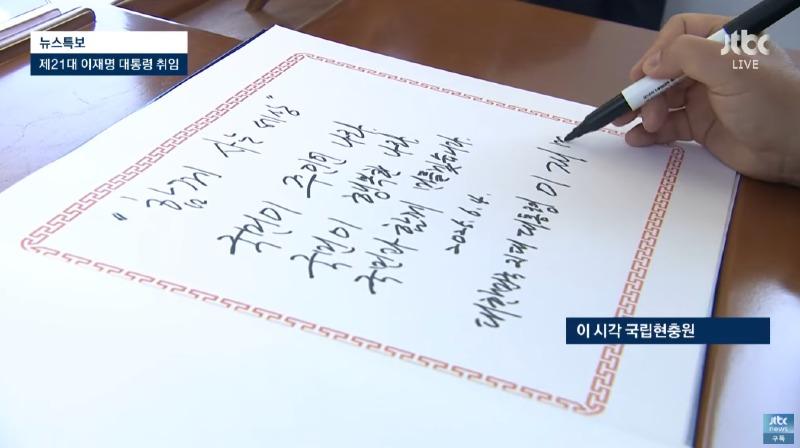 뉴스특보
제21대 이재명 대통령 취임
jtbc
LIVE
"함께 사는 세상"
국민이 주인인 나라,
국민이 행복한 나라,
국민과 함께 만들겠습니다.
2025. 6. 4.
대한민국 21대 대통령 이 재
이 시각 국립현충원
jtbc
news
구독